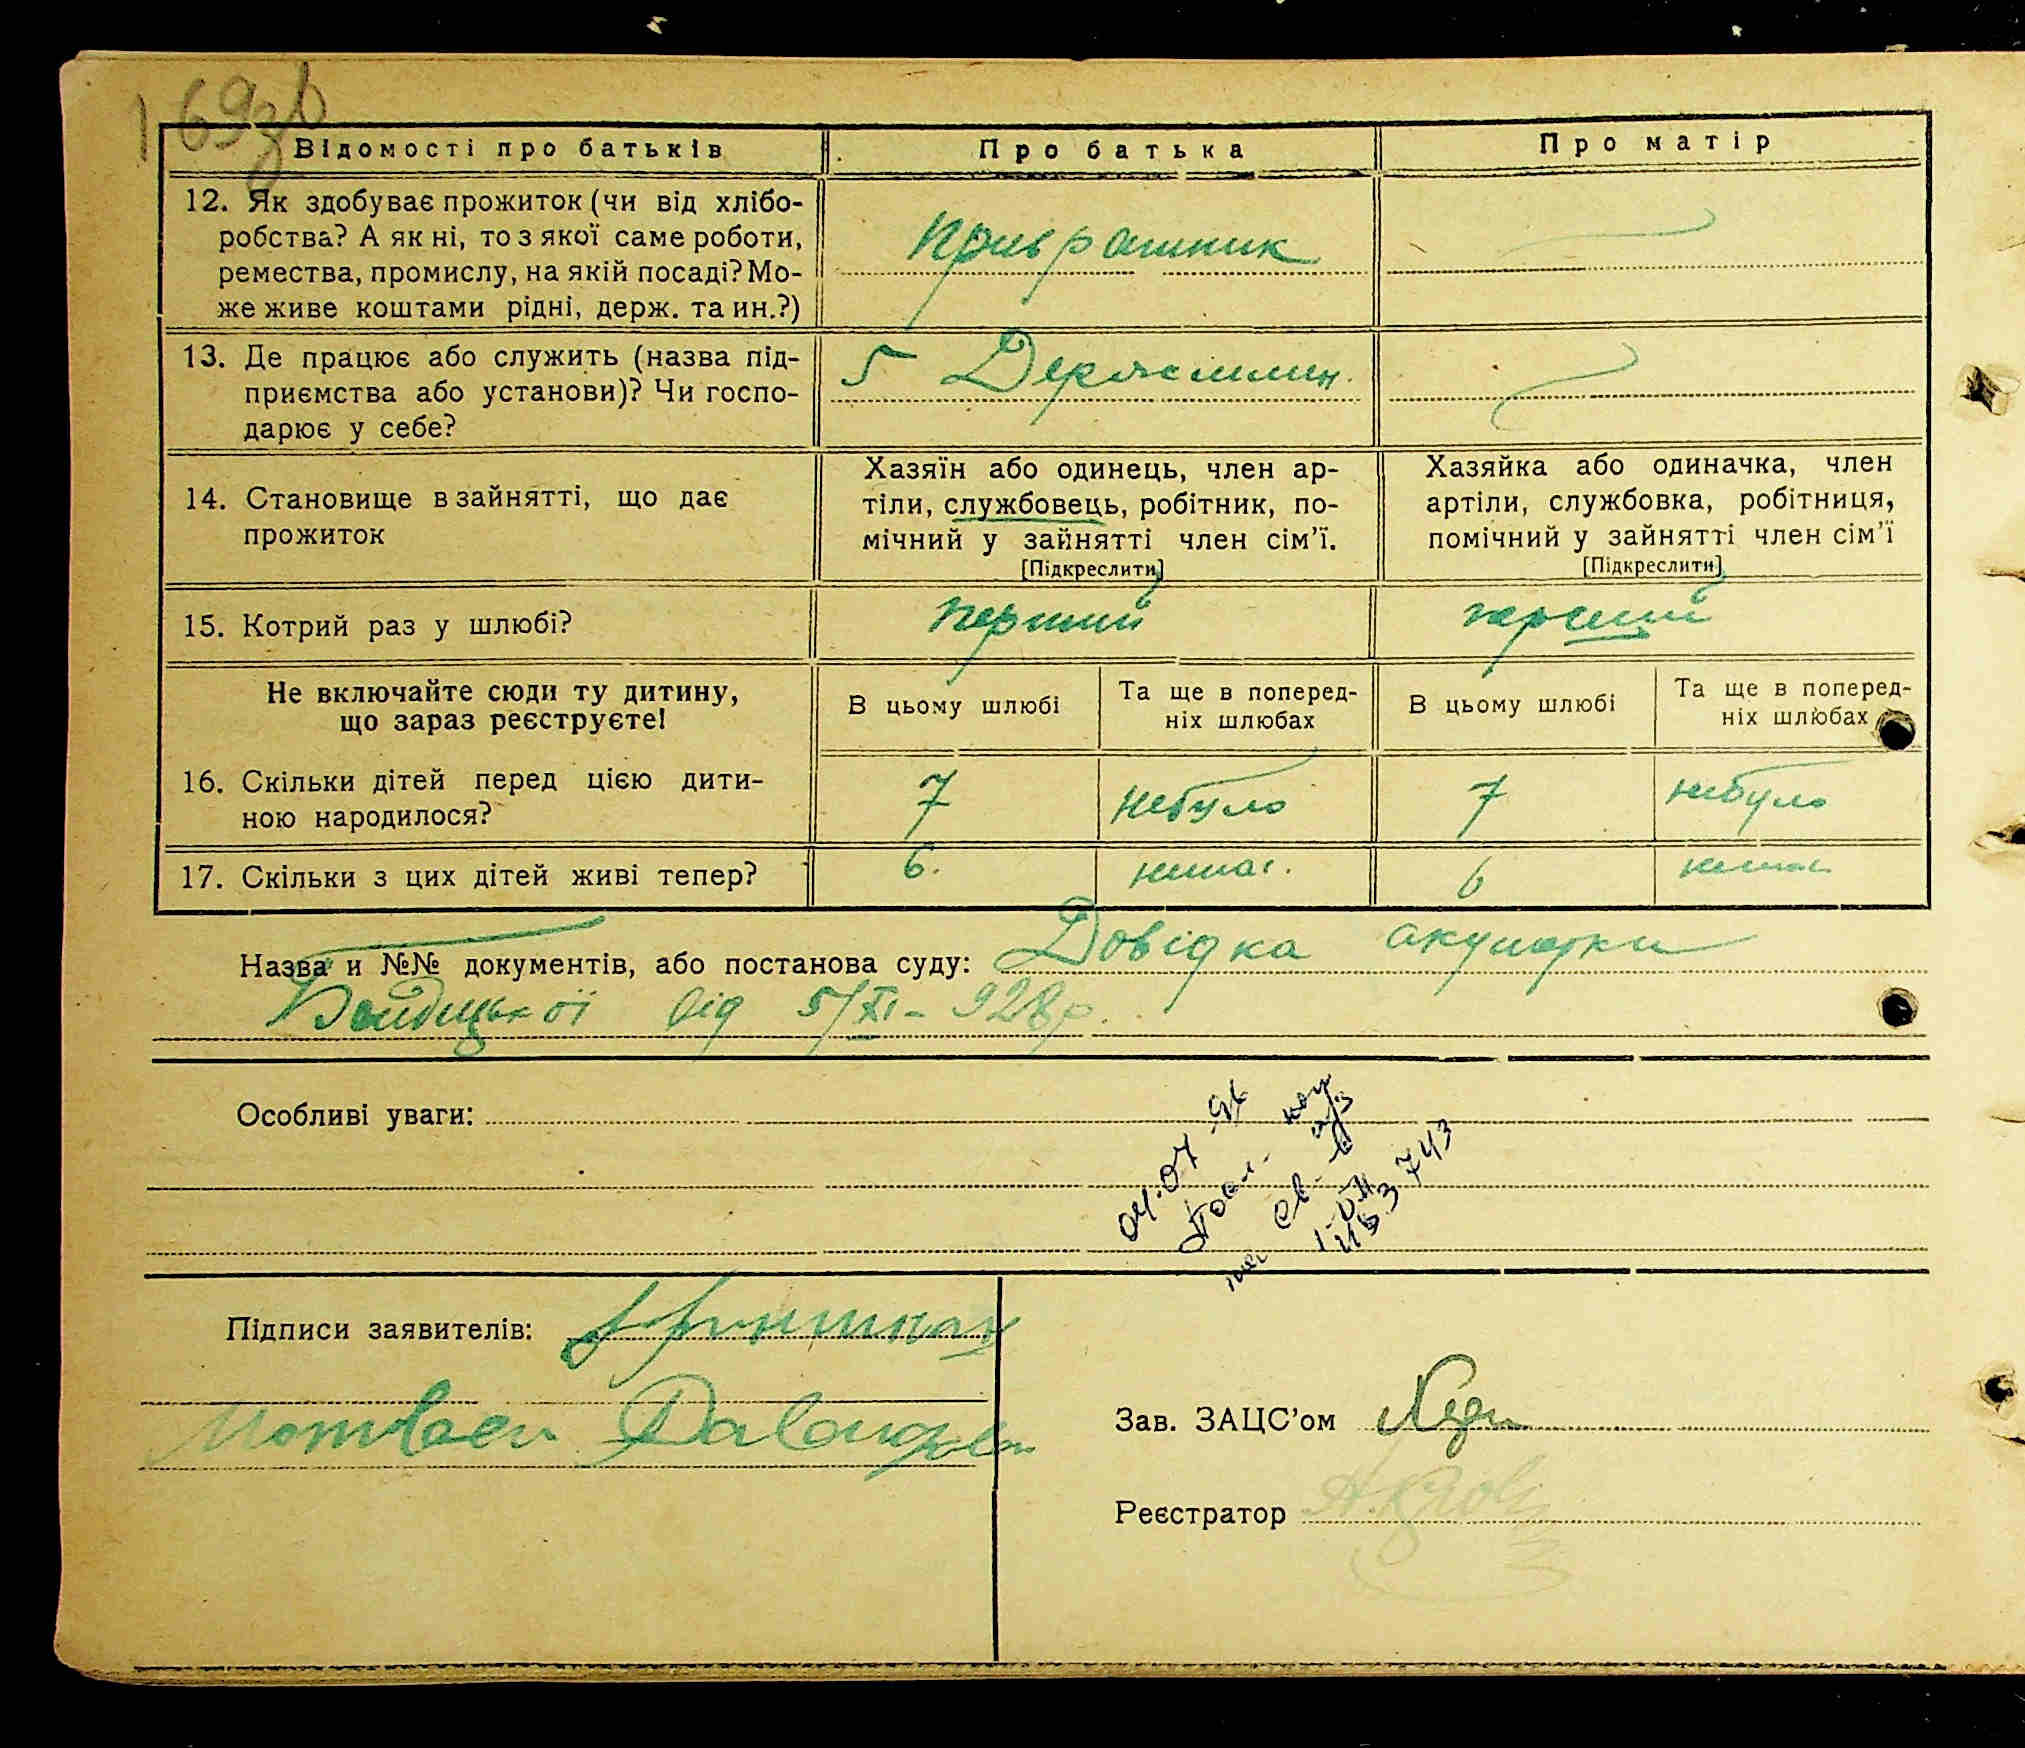 169зв
Відомості про батьків
Про батька
Про матір
12. Як здобуває прожиток (чи від хлібо-
робства? А як ні, то з якої саме роботи,
ремества, промислу, на якій посаді? Мо-
же живе коштами рідні, держ. та ин.?)
Привратник
13. Де працює або служить (назва під-
приємства або установи)? Чи госпо-
дарює у себе?
5 Держмлин.
14. Становище в зайнятті, що дає
прожиток
Хазяїн або одинець, член ар-
тіли, службовець, робітник, по-
мічний у зайнятті член сім'ї.
[Підкреслити]
Хазяйка або одиначка, член
артіли, службовка, робітниця,
помічний у зайнятті член сім'ї
[Підкреслити]
15. Котрий раз у шлюбі?
перший
перший
Не включайте сюди ту дитину,
що зараз реєструєте!
В цьому шлюбі
Та ще в поперед-
ніх шлюбах
В цьому шлюбі
Та ще в поперед-
ніх шлюбах
16. Скільки дітей перед цією дити-
ною народилося?
7
небуло
7
небуло
17. Скільки з цих дітей живі тепер?
6.
немає.
6
немає
Назва и №№ документів, або постанова суду: Довідка акушерки
від 5/XI-928р.
Особливі уваги:
04.07.96
Підписи заявителів:
Зав. ЗАЦС'ом
Реєстратор